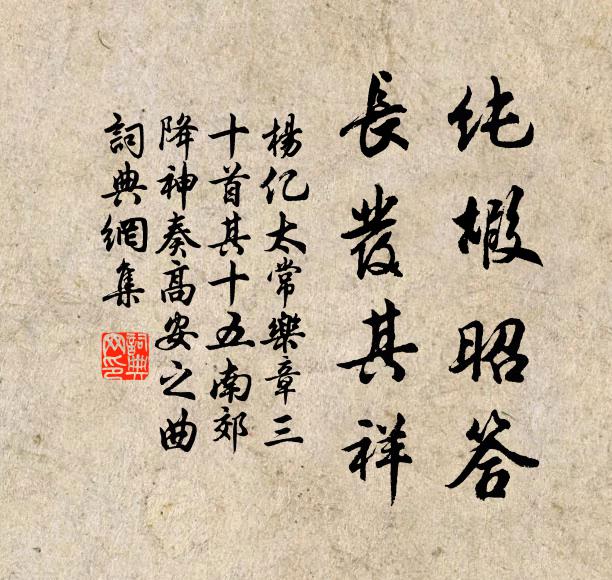 纯嘏昭答
長發其祥
楊亿太常樂章三
十首其十五南郊
降神奏高安之曲
詞典網集
詞典网印